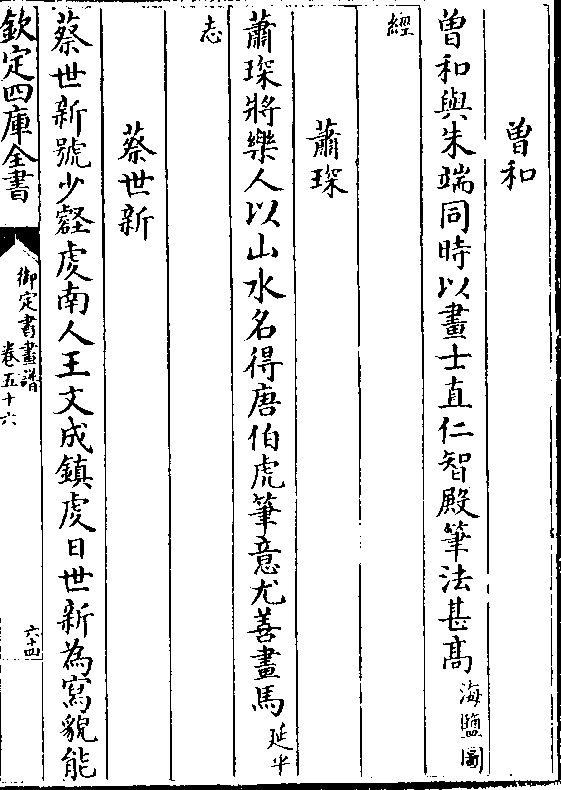 曽和
曽和與朱端同時以畫士直仁智殿筆法甚髙海鹽圖
經
蕭琛
蕭琛將樂人以山水名得唐伯虎筆意尤善畫馬延平
志
蔡世新
蔡世新號少壑䖍南人王文成鎮䖍日世新為寫貌能
欽定四庫全書
御定書畫譜
卷五十六
六十四